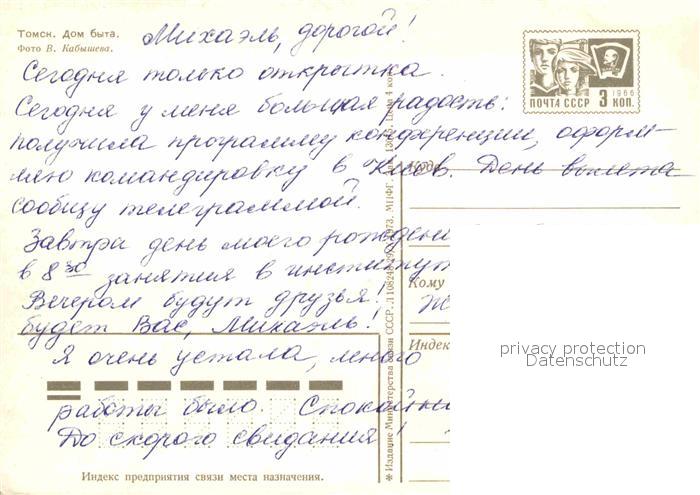 Томск. Дом быта.
Фото В. Кабышева.
Михаэль, дорогой!
Сегодня только открытка.
Сегодня у меня большая радость:
получила программу конференции, оформ-
ляю командировку в Киев. День вылета
сообщу телеграммой.
Завтра день моего рождени
в 8 30 занятия в институт
Вечером будут друзья.
будет Вас, Михаэль!
Я очень устала, много
работы было. Спокойн
До скорого свидания!
ПОЧТА СССР 3 КОП.
1966
Куда
Кому
Индекс
Издание Министерства связи СССР.
Индекс предприятия связи места назначения.
privacy protection
Datenschutz